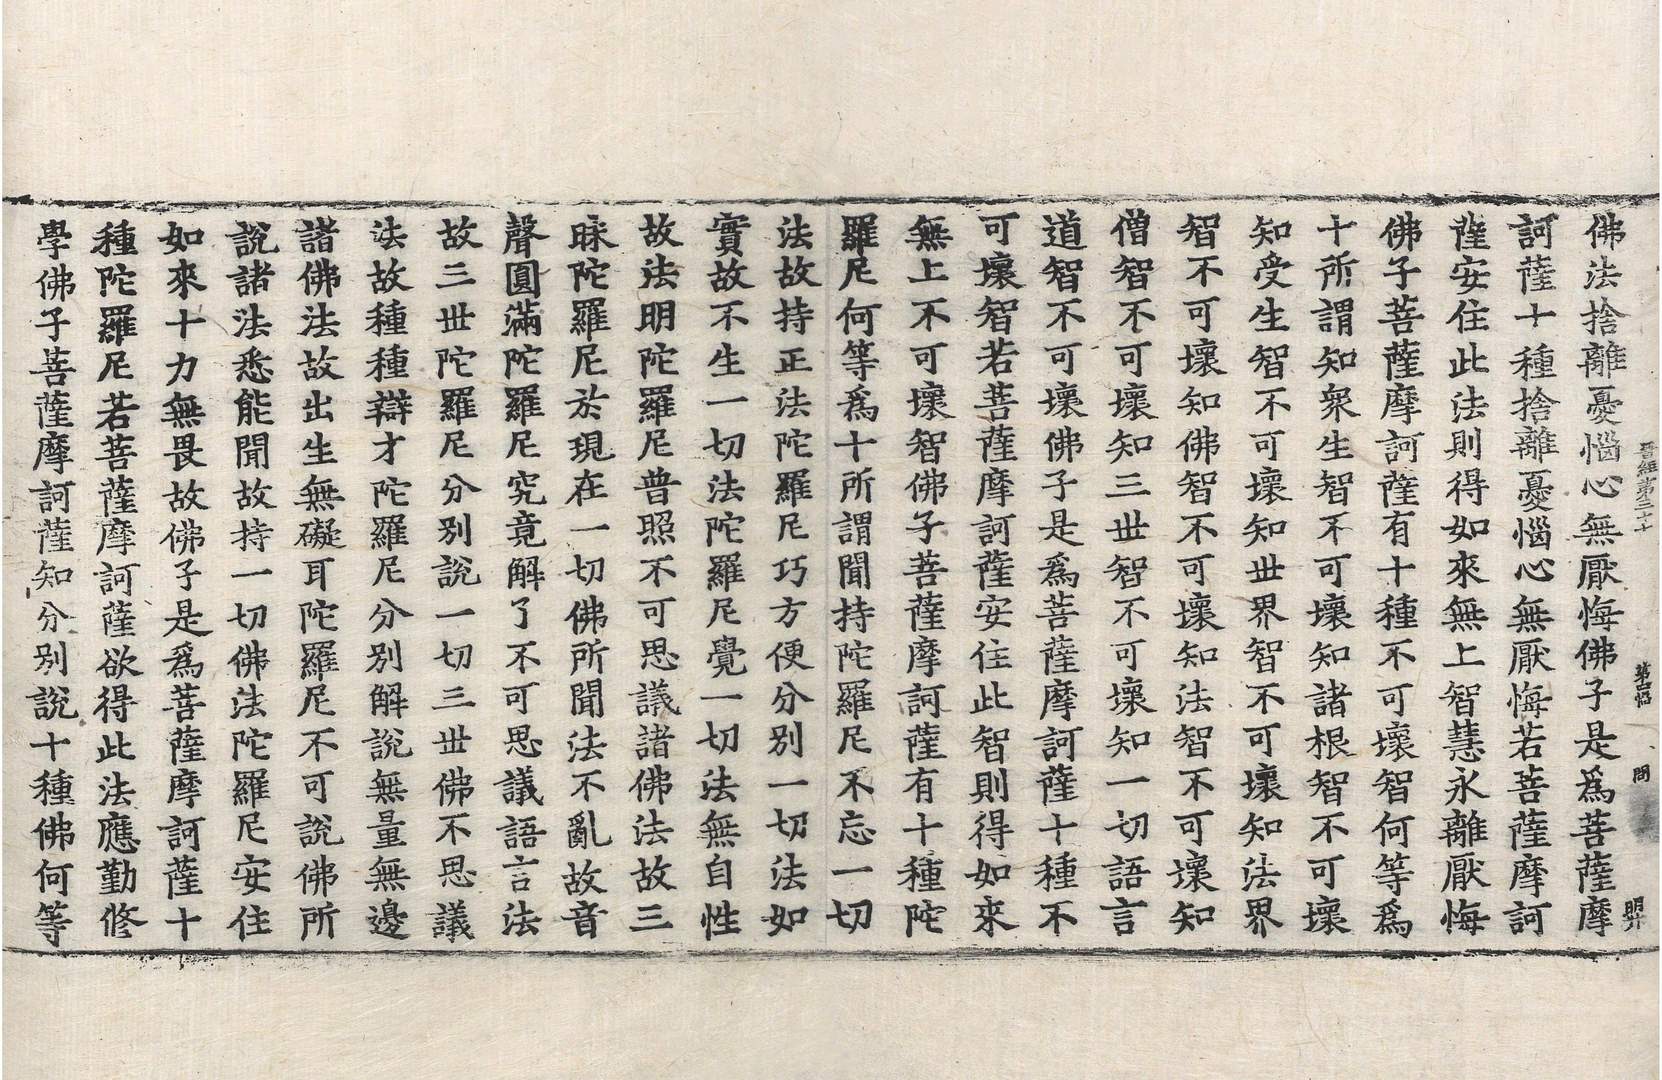 晉經第三十 第四 問 明昇
佛法捨離憂惱心無厭悔佛子是爲菩薩摩
訶薩十種捨離憂惱心無厭悔若菩薩摩訶
薩安住此法則得如來無上智慧永離厭悔
佛子菩薩摩訶薩有十種不可壞智何等爲
十所謂知衆生智不可壞知諸根智不可壞
知受生智不可壞知世界智不可壞知法界
智不可壞知佛智不可壞知法智不可壞知
僧智不可壞知三世智不可壞知一切語言
道智不可壞佛子是爲菩薩摩訶薩十種不
可壞智若菩薩摩訶薩安住此智則得如來
無上不可壞智佛子菩薩摩訶薩有十種陀
羅尼何等爲十所謂聞持陀羅尼不忘一切
法故持正法陀羅尼巧方便分別一切法如
實故不生一切法陀羅尼覺一切法無自性
故法明陀羅尼普照不可思議諸佛法故三
昧陀羅尼於現在一切佛所聞法不亂故音
聲圓滿陀羅尼究竟解了不可思議語言法
故三世陀羅尼分別說一切三世佛不思議
法故種種辯才陀羅尼分別解說無量無邊
諸佛法故出生無礙耳陀羅尼不可說佛所
說諸法悉能聞故持一切佛法陀羅尼安住
如來十力無畏故佛子是爲菩薩摩訶薩十
種陀羅尼若菩薩摩訶薩欲得此法應勤修
學佛子菩薩摩訶薩知分別說十種佛何等